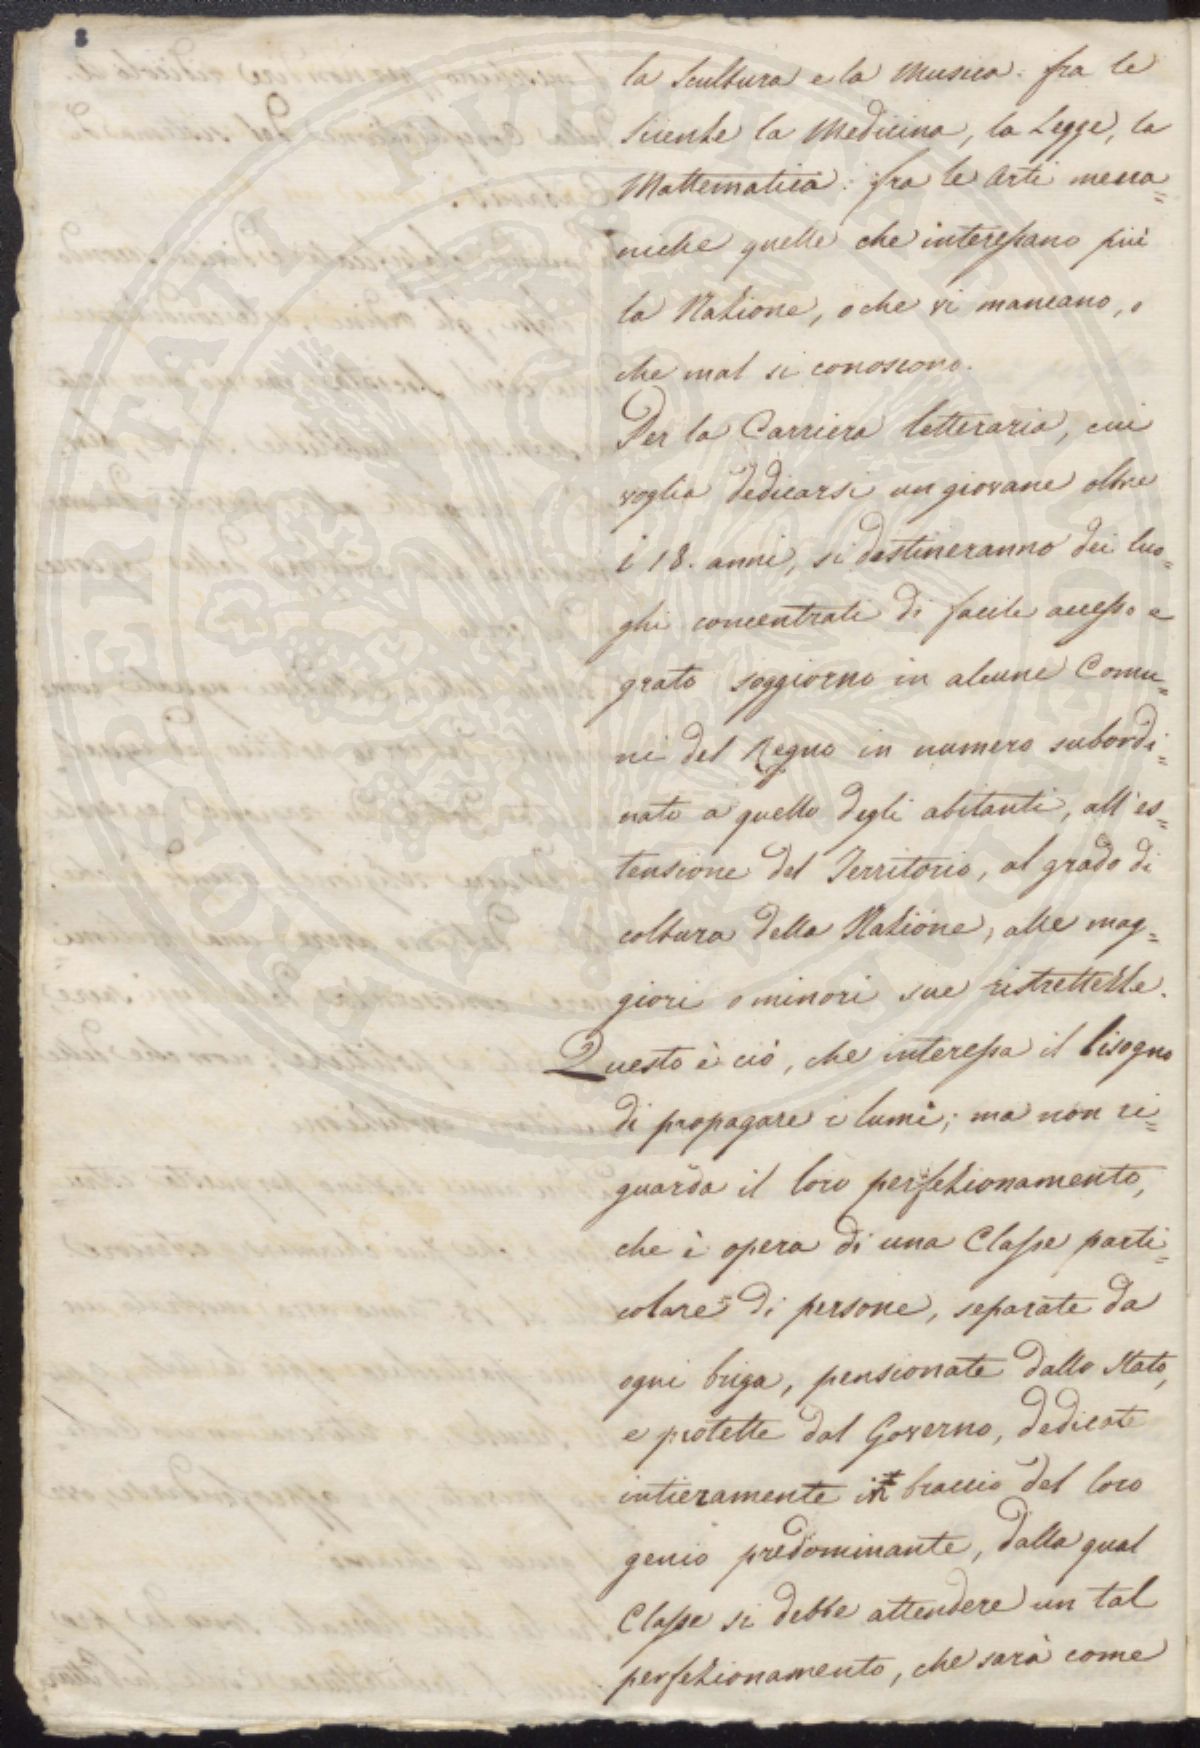 8
la Scultura e la Musica: fra le
Scienze la Medicina, la Legge, la
Mattematica: fra le Arti mecca=
niche quelle che interessano più
la Nazione, o che vi mancano, o
che mal si conoscono.
Per la Carriera letteraria, cui
voglia dedicarsi un giovane oltre
i 18. anni, si destineranno dei luo=
ghi concentrati di facile accesso e
grato soggiorno in alcune Comu=
ni del Regno in numero subordi=
nato a quello degli abitanti, all'es=
tensione del Territorio, al grado di
coltura della Nazione, alle mag=
giori o minori sue ristrettezze.
Questo è ciò, che interessa il bisogno
di propagare i lumi; ma non ri=
guarda il loro perfezionamento,
che è opera di una Classe parti=
colare di persone, separate da
ogni briga, pensionate dallo Stato,
e protette dal Governo, dedicate
intieramente in braccio del loro
genio predominante, dalla qual
Classe si debbe attendere un tal
perfezionamento, che sarà come
PROSPERITATI PVBLICAE AVGENDAE